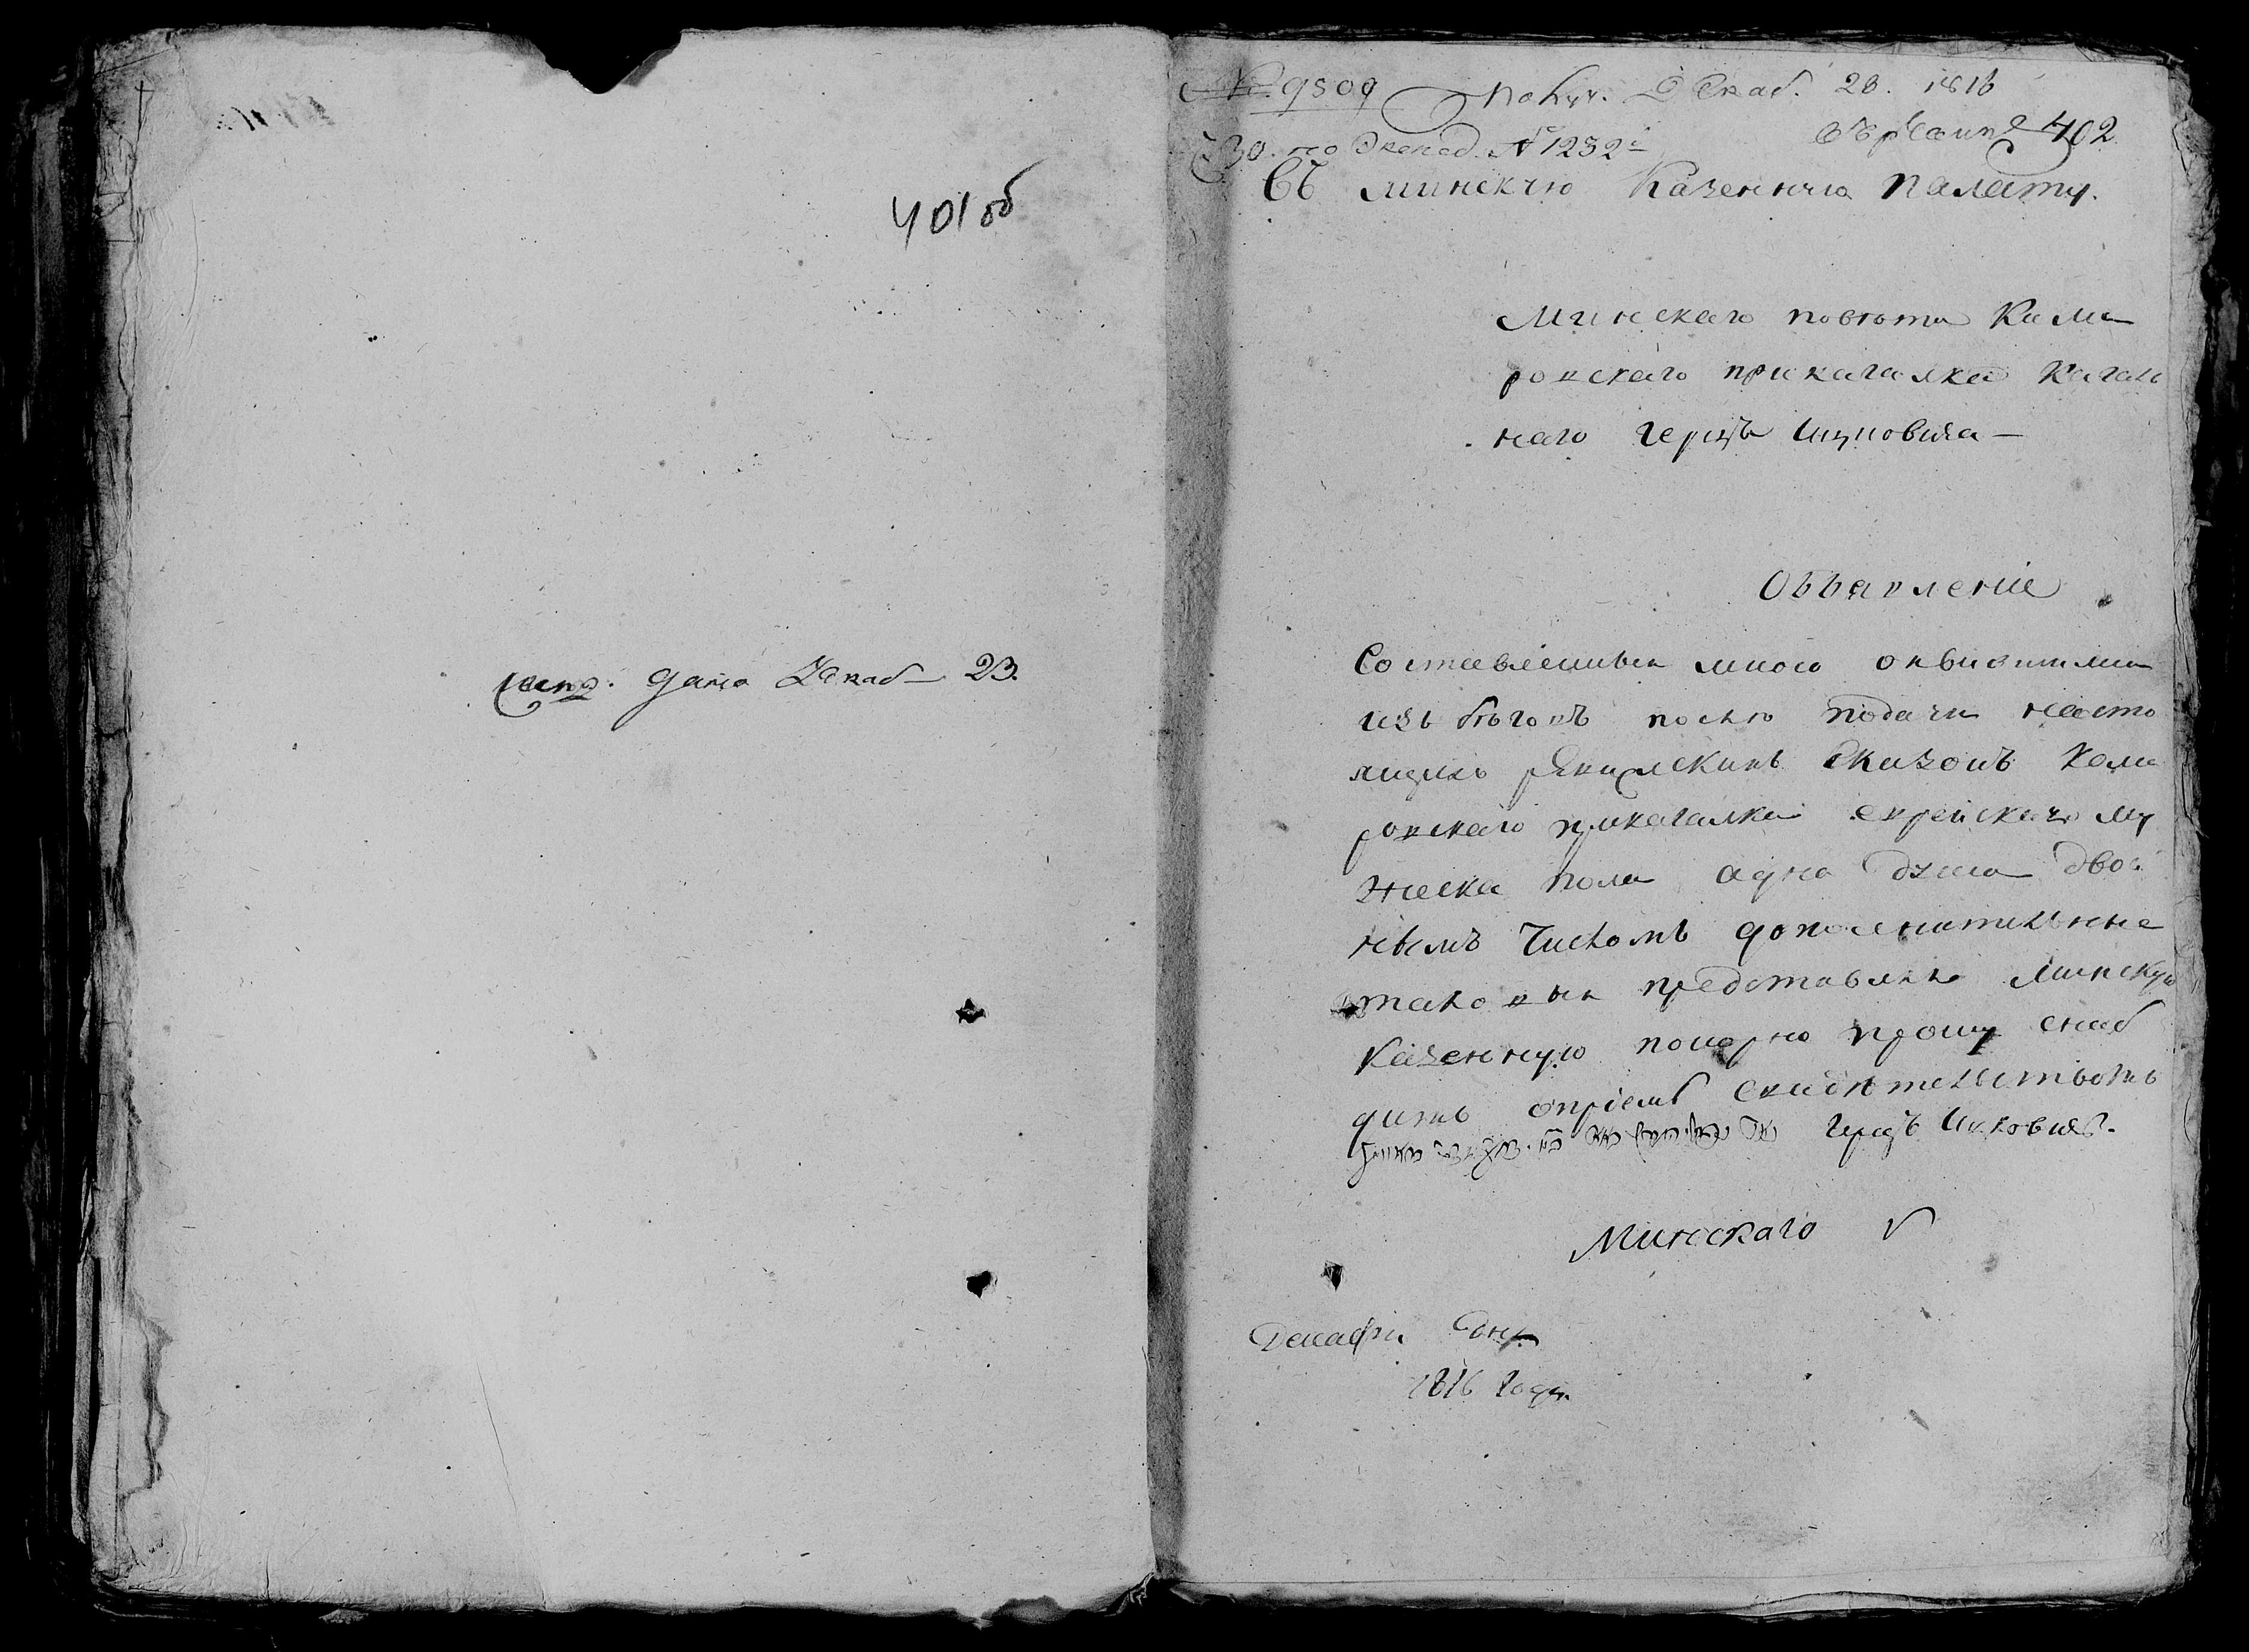 401 об
дана Декаб 23.
№ 9509 Получ. Декаб. 23. 1816
по Экспед. № 1232 402
Въ минскую Казенную палату.
Минскаго повѣта Каме
ровскаго прикагалка Кагаль
наго Герцъ Ицковича —
Объявленіе
Составленныя мною о
изъ бѣговъ послѣ подачи насто
ящихъ сказокъ Каме
ровскаго прикагалка еврейскаго му
жеска пола адна душа двой
нымъ числомъ дополнительные
таковыя представляя минскую
Казенную покорно прошу снаб
дить опріемѣ свидѣтельствомъ
Герцъ Ицковичъ.
Минскаго
Декабря
1816 Года.